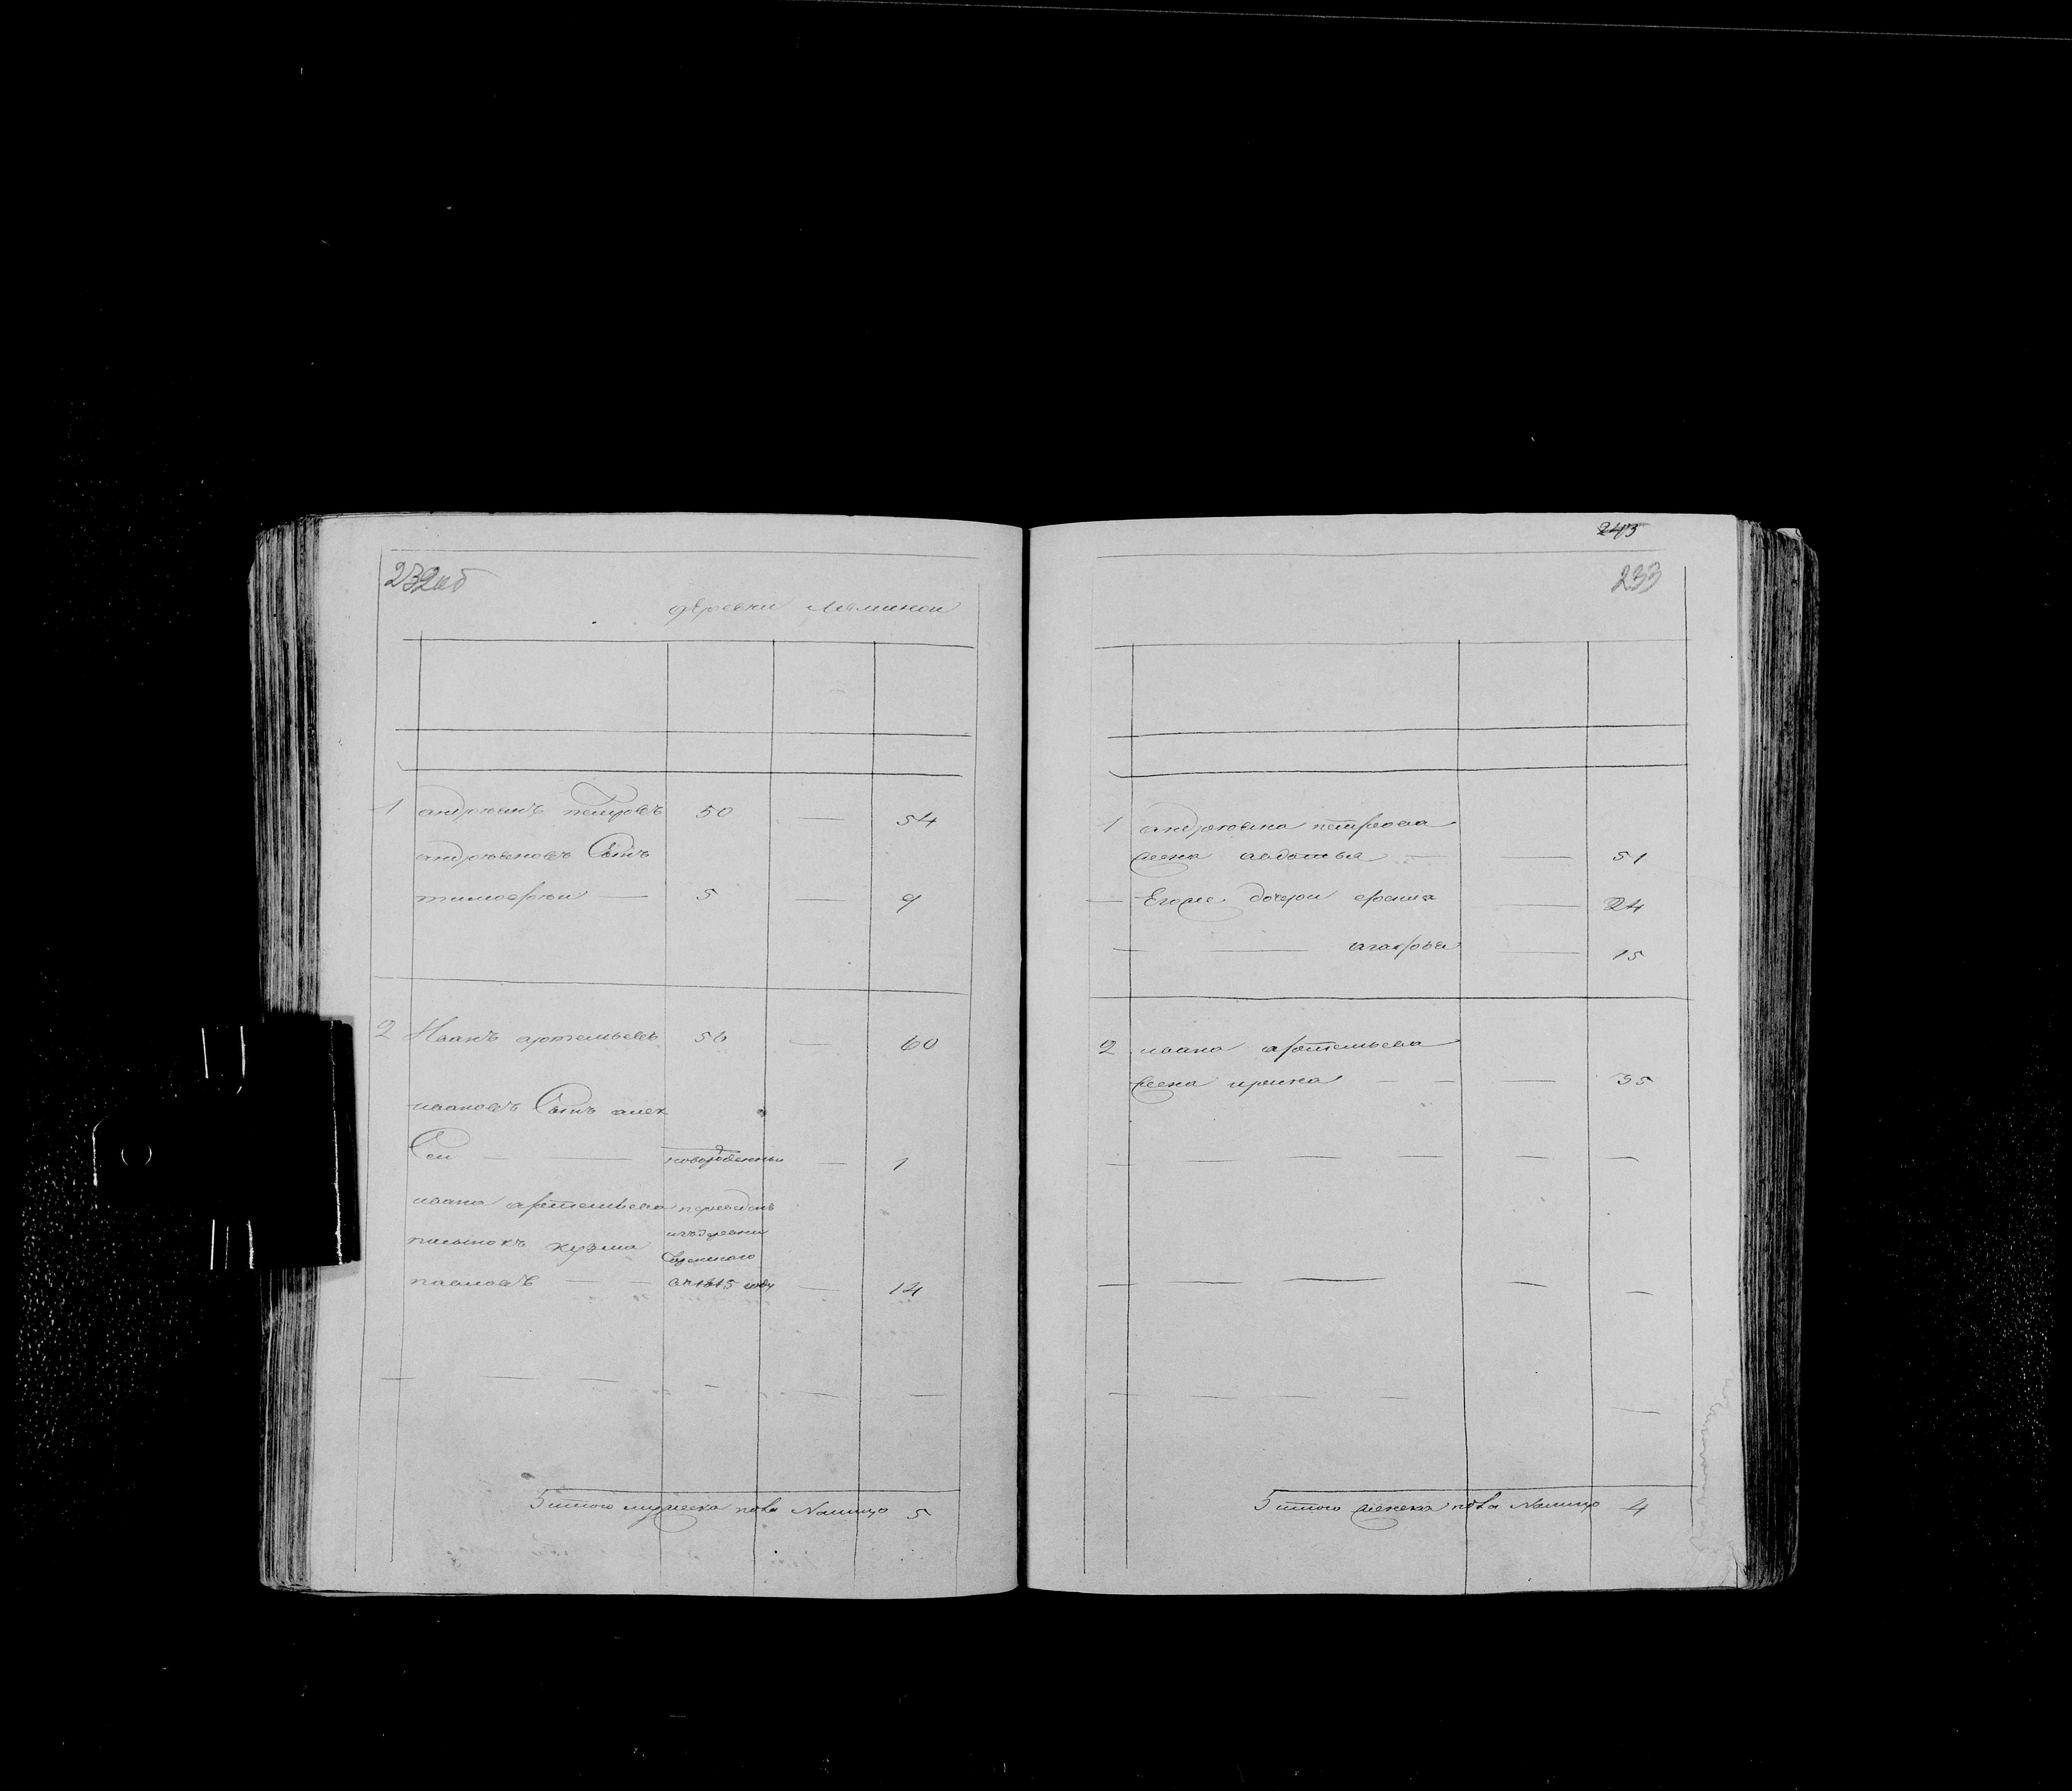 232об
деревни
1 андреянъ петровъ 50 — 54
андреяновъ Сынъ
тимофеи — 5 — 9
2 Иванъ артемьевъ 56 — 60
ивановъ Сынъ алек
Сеи — — новорожденныи — 1
ивана артемьева переведенъ
изъ деревни
кузма
павловъ — — въ 1815 году — 14
итого мужеска пола Налицо 5
243
233
1 андреяна петрова
жена авдотья — — 51
— Егоже дочери — 24
— — агафья — 15
2 ивана артемьева
жена ирина — — — 35
итого женска пола Налицо 4